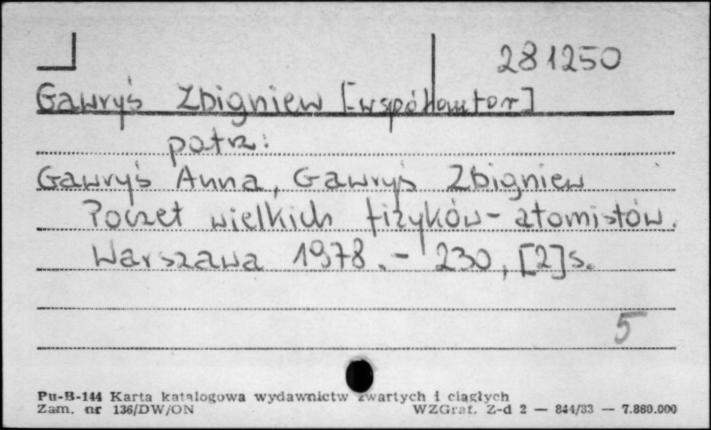 281250
Gawryś Zbigniew [współautor]
patrz:
Gawryś Anna, Gawryś Zbigniew
Poczet wielkich fizyków-atomistów.
Warszawa 1978. - 230, [2] s.
5
Pu-B-144 Karta katalogowa wydawnictw zwartych i ciągłych
Zam. nr 136/DW/ON WZGraf. Z-d 2 — 844/83 — 7.880.000